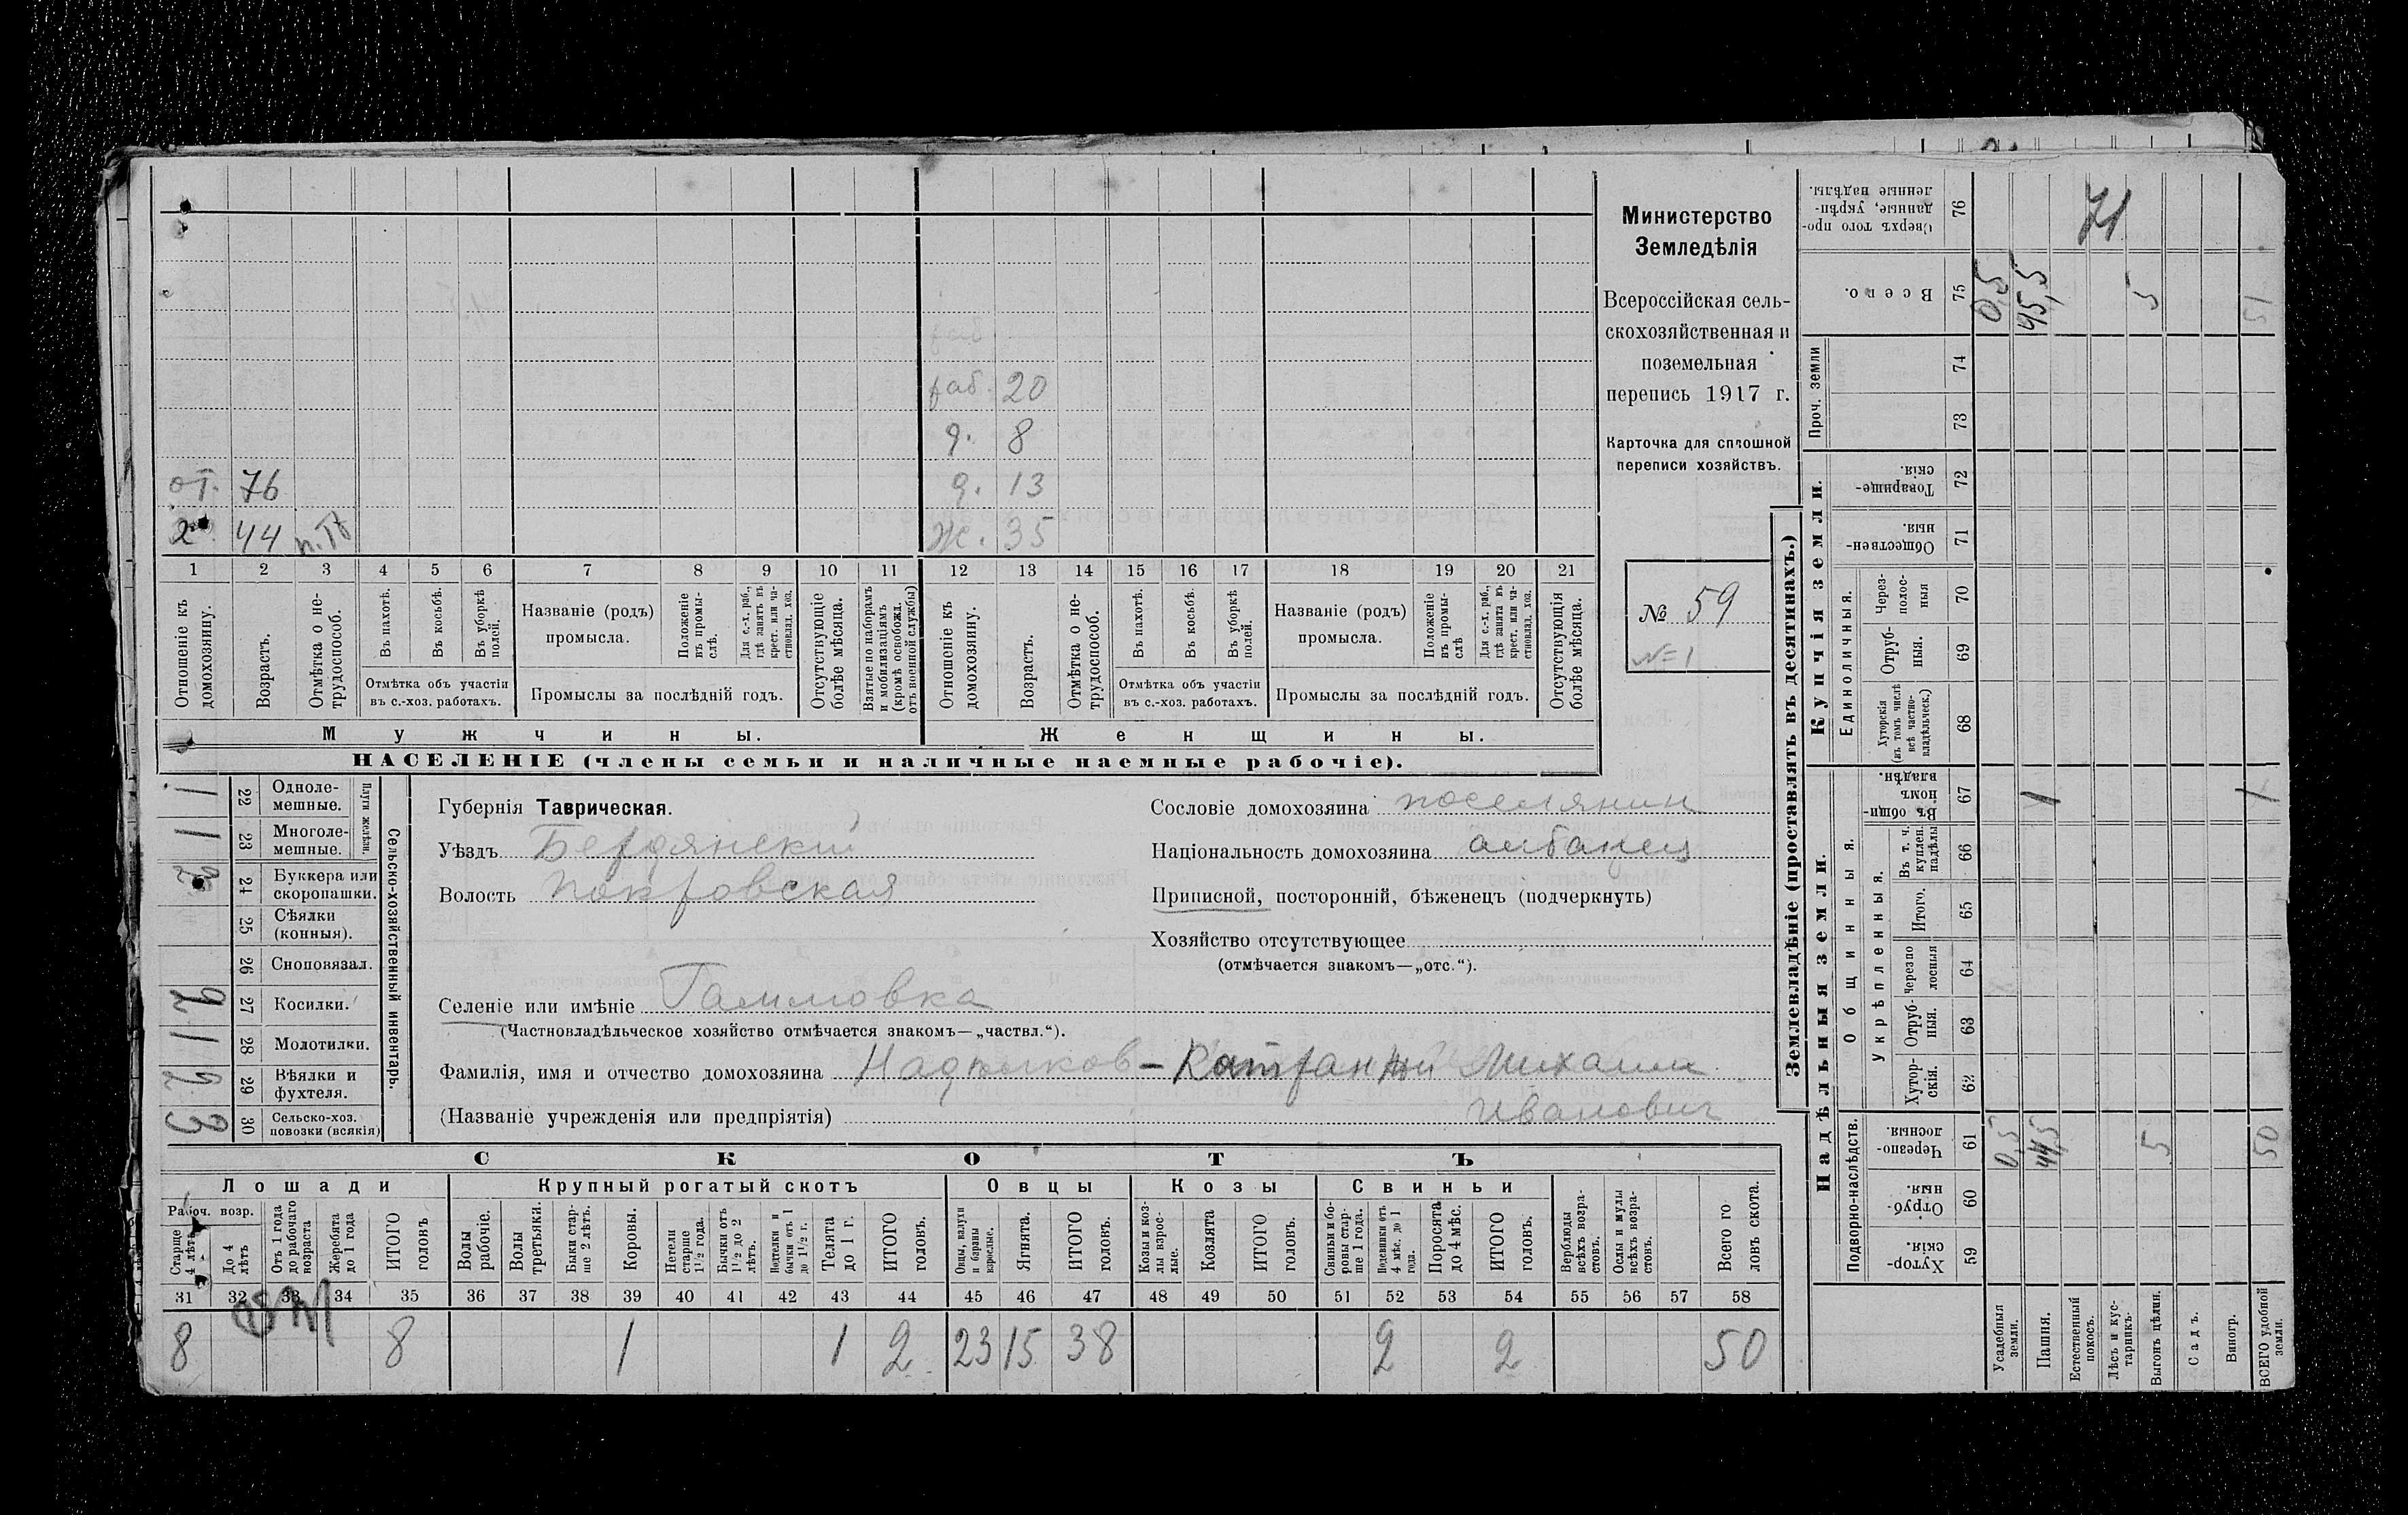 Министерство
Земледѣлія
Всероссійская сель-
скохозяйственная и
поземельная
перепись 1917 г.
Карточка для сплошной
переписи хозяйствъ.
№ 59
№ 1
раб. 20
д. 8
от. 76 д. 13
х. 44 н.тр Ж. 35
1 2 3 4 5 6 7 8 9 10 11 12 13 14 15 16 17 18 19 20 21
Отношеніе къ домохозяину.
Возрастъ.
Отмѣтка о не-трудоспособ.
Въ пахотѣ.
Въ косьбѣ.
Въ уборкѣ полей.
Отмѣтка объ участіи
въ с.-хоз. работахъ.
Названіе (родъ)
промысла.
Положеніе въ промы-слѣ.
Для с.-х. раб., гдѣ занятъ въ крест. или ча-стновлад. хоз.
Промыслы за послѣдній годъ.
Отсутствующіе болѣе мѣсяца.
Взятые по наборамъ и мобилизаціямъ (кромѣ освобожд. отъ военной службы)
Отношеніе къ домохозяину.
Возрастъ.
Отмѣтка о не-трудоспособ.
Въ пахотѣ.
Въ косьбѣ.
Въ уборкѣ полей.
Отмѣтка объ участіи
въ с.-хоз. работахъ.
Названіе (родъ)
промысла.
Положеніе въ промы-слѣ
Для с.-х. раб., гдѣ занята въ крест. или ча-стновлад. хоз.
Промыслы за послѣдній годъ.
Отсутствующія болѣе мѣсяца.
Мужчины. Женщины.
НАСЕЛЕНІЕ (члены семьи и наличные наемные рабочіе).
Сельско-хозяйственный инвентарь.
Плуги желѣзн.
1 22 Одноле-мешные.
1 23 Многоле-мешные.
2 24 Буккера или скоропашки.
25 Сѣялки (конныя).
26 Сноповязал.
2 27 Косилки.
1 28 Молотилки.
2 29 Вѣялки и фухтеля.
3 30 Сельско-хоз. повозки (всякія)
Губернія Таврическая.
Уѣздъ Бердянский
Волость Покровская
Селеніе или имѣніе Гаммовка
(Частновладѣльческое хозяйство отмѣчается знакомъ—„частвл.“).
Сословіе домохозяина поселянин
Національность домохозяина албанец
Приписной, посторонній, бѣженецъ (подчеркнуть)
Хозяйство отсутствующее
(отмѣчается знакомъ—„отс.“).
Фамилія, имя и отчество домохозяина Михаил
(Названіе учрежденія или предпріятія) Иванович
СКОТЪ
Лошади Крупный рогатый скотъ Овцы Козы Свиньи
Рабоч. возр.
Старше 4 лѣтъ
До 4 лѣтъ
Отъ 1 года до рабочаго возраста
Жеребята до 1 года
ИТОГО головъ
Волы рабочіе.
Волы третьяки.
Быки стар-ше 2 лѣтъ.
Коровы.
Нетели старше 1½ года.
Бычки отъ 1½ до 2 лѣтъ.
Подтелки и бычки отъ 1 до 1½ г.
Телята до 1 г.
ИТОГО головъ.
Овцы, валухи и бараны взрослые.
Ягнята.
ИТОГО головъ.
Козы и коз-лы взрос-лые.
Козлята
ИТОГО головъ.
Свиньи и бо-ровы стар-ше 1 года.
Подсвинки отъ 4 мѣс. до 1 года.
Поросята до 4 мѣс.
ИТОГО головъ.
Верблюды всѣхъ возра-стовъ.
Ослы и мулы всѣхъ возра-стовъ.
Всего го ловъ скота.
31 32 33 34 35 36 37 38 39 40 41 42 43 44 45 46 47 48 49 50 51 52 53 54 55 56 57 58
8 8 1 1 2 23 15 38 2 2 50
Землевладѣніе (проставлять въ десятинахъ.)
Купчія земли.
Надѣльныя земли.
Сверхъ того про-данные, укрѣп-ленные надѣлы. 76 71
Всего. 75 0,5 45,5 5 51
Проч. земли 74
73
Товарище-скія. 72
Обществен-ныя. 71
Единоличныя.
Через-полос-ныя 70
Отруб-ныя. 69
Хуторскія (въ томъ числѣ всѣ частно-владѣльческ.) 68
Общинныя.
Въ общин-номъ владѣн. 67 1 1
Укрѣпленныя.
Въ т. ч. куплен. надѣлы 66
Итого. 65
Черезпо лосныя 64
Отруб-ныя. 63
Хутор-скія. 62
Подворно-наслѣдств.
Черезпо-лосныя. 61 0,5 44,5 5 50
Отруб-ныя. 60
Хутор-скія. 59
Усадебныя земли.
Пашня.
Естественный покосъ.
Лѣсъ и кус-тарникъ.
Выгонъ цѣлин.
Садъ.
Виногр.
ВСЕГО удобной земли.